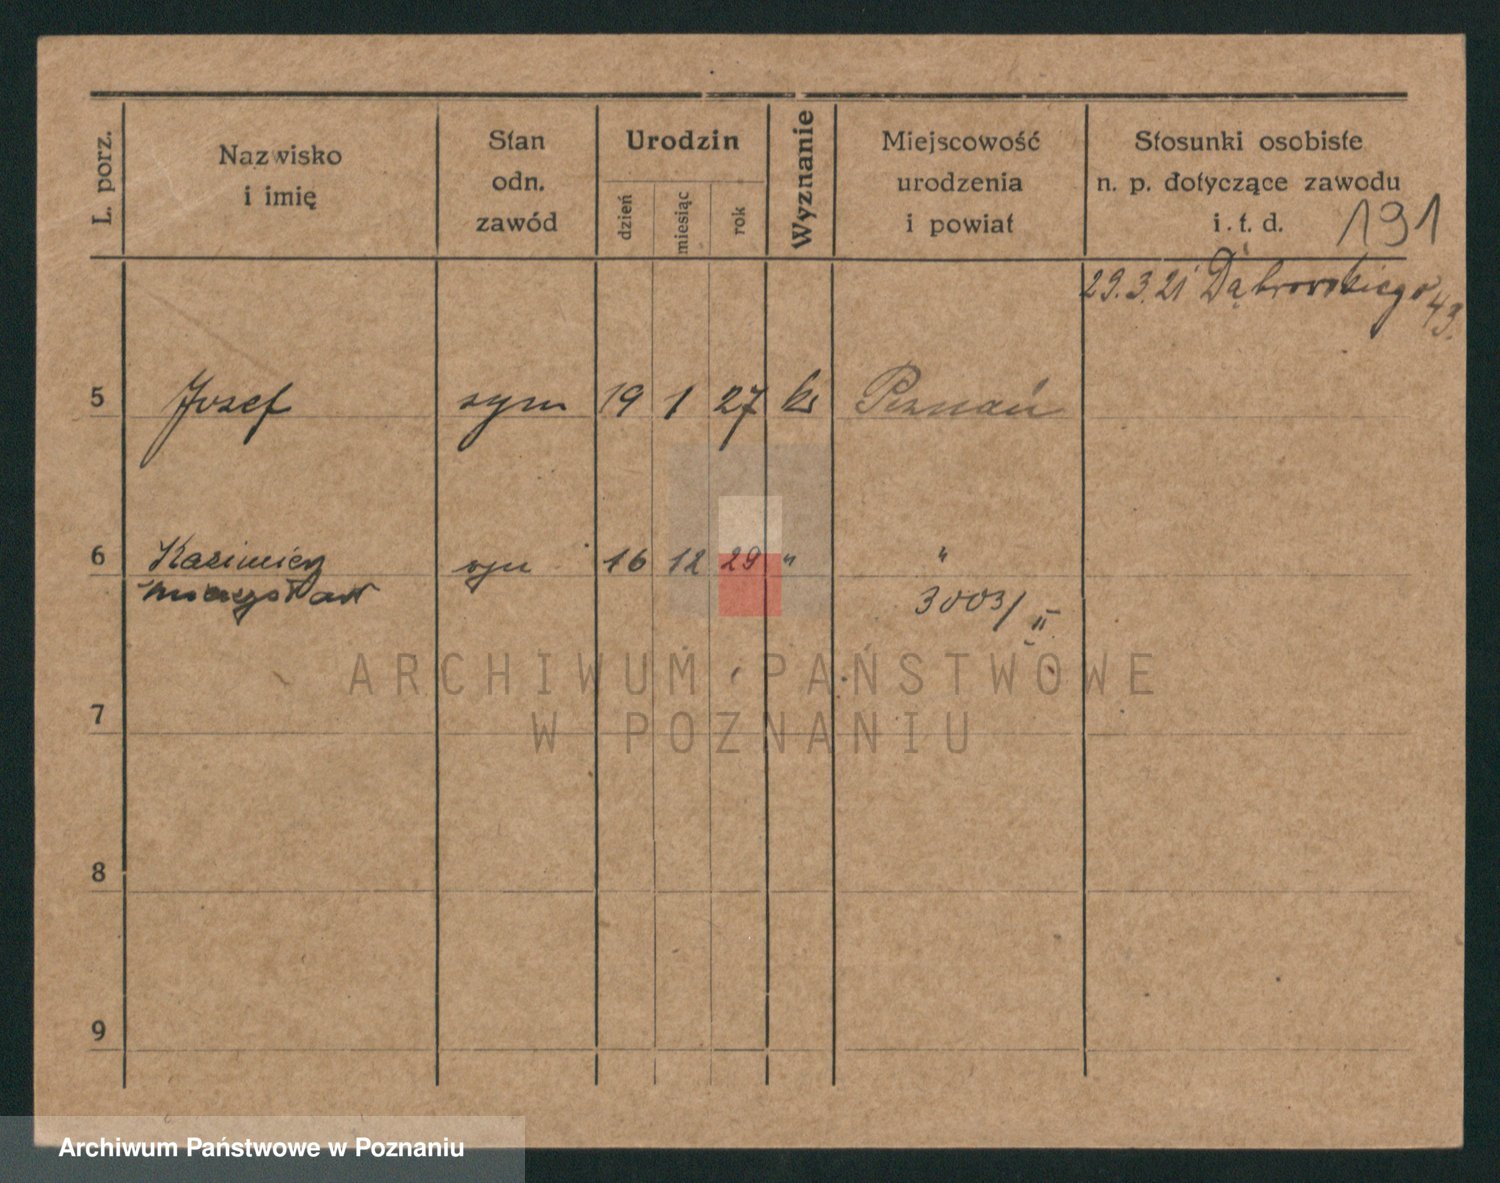 L. porz.
Nazwisko
i imię
Stan
odn.
zawód
Urodzin
dzień
miesiąc
rok
Wyznanie
Miejscowość
urodzenia
i powiat
Stosunki osobiste
n. p. dotyczące zawodu
i. t. d.
191
29.3.21 Dąbrowskiego 43.
5 Jozef syn 19 1 27 Poznań
6 Kazimierz syn 16 12 29 " "
Mieczysław
3003/II
7
8
9
ARCHIWUM PAŃSTWOWE
W POZNANIU
Archiwum Państwowe w Poznaniu